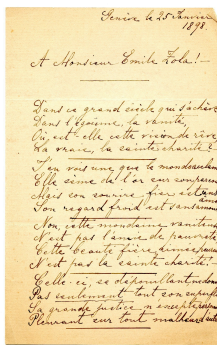 Genève le 25 Janvier
1898.
A Monsieur Emile Zola!
Dans ce grand siècle qui s'achève
Dans l'égoïsme, la vanité,
Où est-elle cette vision de rêve
La vraie, la sainte charité?
J'en vois une que le monde
Elle sème de l'or sur son
Mais son sourire fier est sans
âme
Son regard froid est sans
Non cette mondaine vaniteuse
N'est pas l'ange de pauvreté
Cette beauté fière, aimée
N'est pas la sainte charité!
Celle-ci, se dépouillant
Pas seulement tout son superflu
Sa grande justice n'accepte
Pleurant sur tout malheur